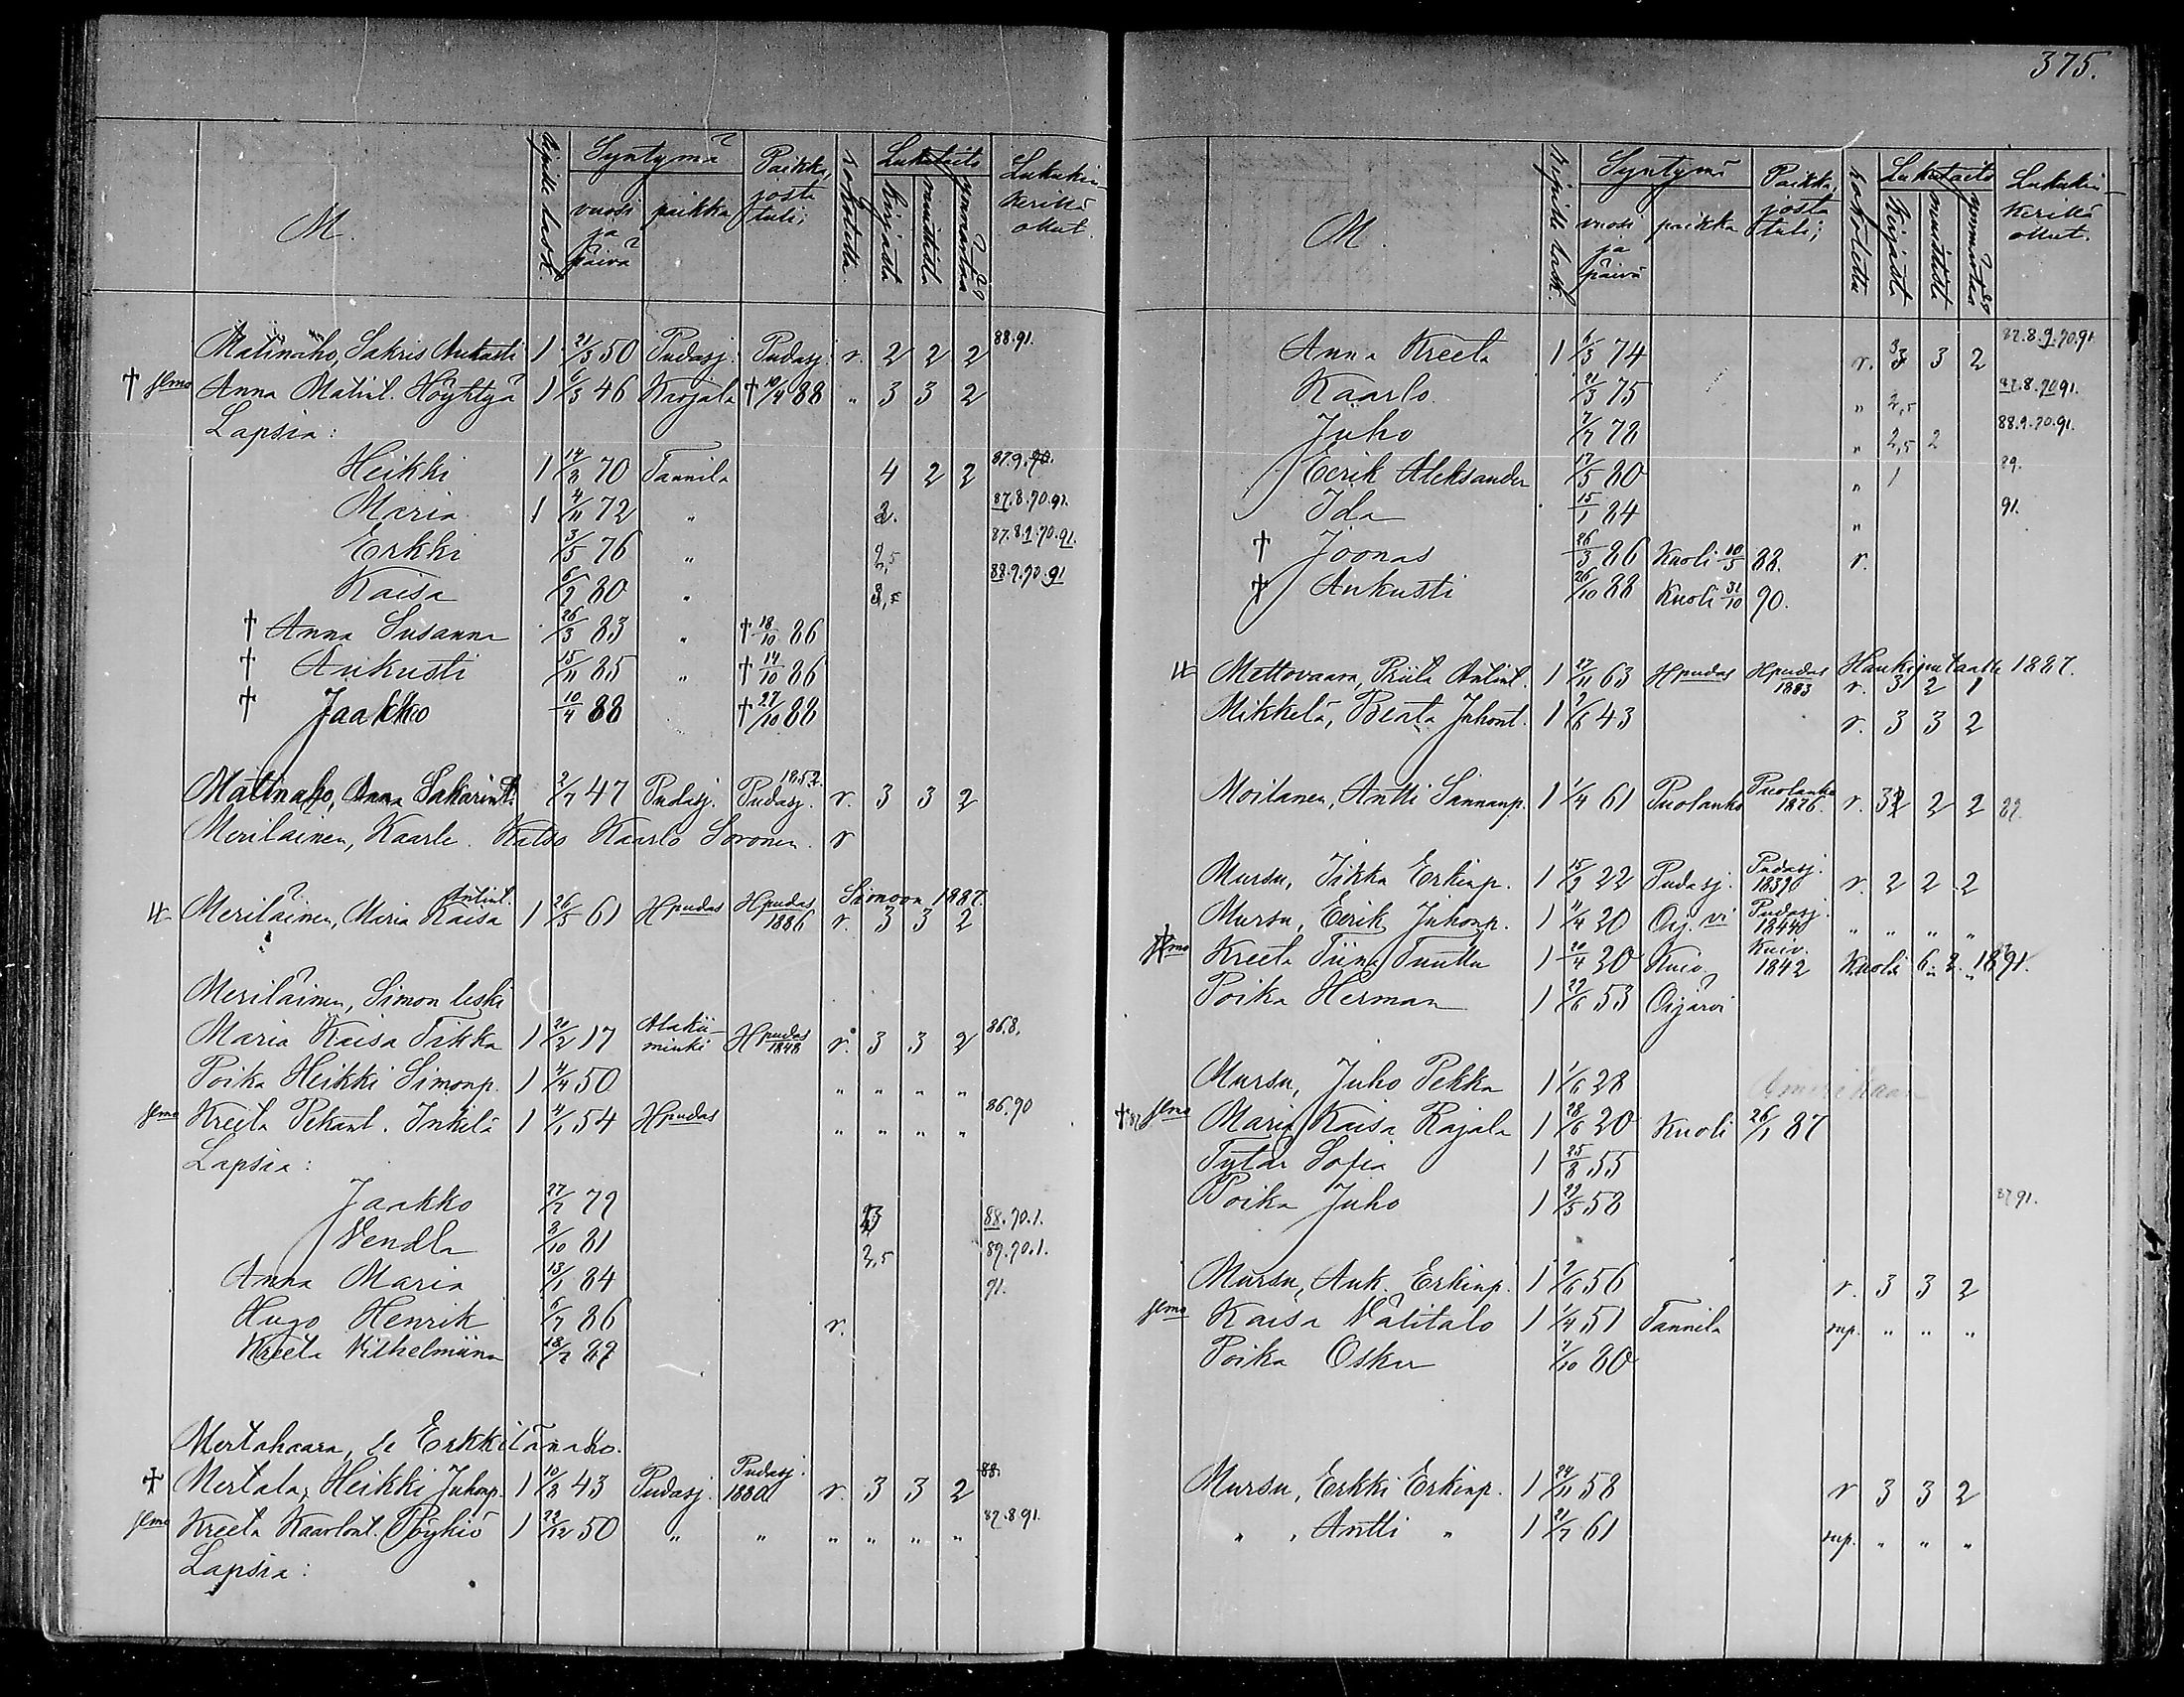 M.
Ripille lask.
Syntymä
vuosi ja päivä
paikka
Paikka, josta tuli;
rokotettu.
Lukutaito
kirjasta
muistista
ymmärrys
Lukukinkerillä ollut.
Matinaho, Sakris Aukusti 1 21/3 50 Pudasj. Pudasj. r. 2 2 2 88.91.
† Anna Matint. Höyhtyä 1 6/3 46 † 10/4 88 " 3 3 2
Lapsia:
Heikki 1 14/3 70 Tannila 4 2 2 87.9.90.
Maria 1 4/11 72 " 87.8.90.91.
Erkki 3/5 76 " 2,5 87.8.9.90.91.
Kaisa 6/2 80 " 88.9.90.91
† Anna Susanna 26/3 83 " † 18/10 86
† Aukusti 15/11 85 " † 14/10 86
† Jaakko 10/4 88 † 27/10 88
Matinaho, Anna Sakarint. 2/7 47 Pudasj. Pudasj. 1852 r. 3 3 2
Meriläinen, Kaarle. Katso Kaarlo Soronen. r
Meriläinen, Maria Kaisa Antint. 1 26/5 61 Hpudas Hpudas 1886 Simoon 1887. r. 3 3 2
Meriläinen, Simon leski
Maria Kaisa Tikka 1 20/2 17 Alakiiminki Hpudas 1848 r. 3 3 2 86.8.
Poika Heikki Simonp. 1 4/4 50 " " " "
Kreeta Pekant. Inkilä 1 4/1 54 Hpudas " " " " 86.90
Lapsia:
Jaakko 27/7 79 88.90.1.
Vendla 3/10 81 2,5 89.90.1.
Anna Maria 13/1 84 91.
Hugo Henrik 6/7 86 r.
Kreeta Vilhelmiina 18/7 89
Mertahaara, le Erkkilänaho.
† Mertala, Heikki Juhonp. 1 10/8 43 Pudasj. Pudasj. 1880 r. 3 3 2 88.
Kreeta Kaarlont. Pöykiö 1 22/12 50 " " " " " " 87.8 91.
Lapsia:
375.
M.
Ripille lask.
Syntymä
vuosi ja päivä
paikka
Paikka, josta tuli;
rokotettu
Lukutaito
kirjasta
muistista
ymmärrys
Lukukinkerillä ollut.
Anna Kreeta 1 6/3 74 r. 3 3 2 87.8.9.90.91.
Kaarlo 21/3 75 " 2,5 87.8.9091.
Juho 7/7 78 " 2,5 2 88.9.90.91.
Eerik Aleksander 17/5 80 " 1 89.
Ida 15/1 84 " 91.
† Joonas 26/3 86 Kuoli 10/5 88. r.
† Aukusti 26/10 88 Kuoli 31/10 90.
Mettovaara, Priita Antint. 1 27/11 63 Hpudas Hpudas 1883 Haukiputaalle 1887. r. 3 2 1
Mikkelä, Beata Juhont. 1 2/6 43 r. 3 3 2
Moilanen, Antti Sannanp. 1 1/4 61 Puolanko Puolanko 1876. r. 3 2 2 89.
Mursu, Iikka Erkinp. 1 15/9 22 Pudasj. Pudasj. 1839 r. 2 2 2
Mursu, Eerik Juhonp. 1 11/4 20 Oij.vi Pudasj. 1844 " " " "
Kreeta Tiina Tuuttu 1 20/4 20 Kuiv. Kuiv. 1842 Kuoli 6. 2. 1891.
Poika Herman 1 29/6 53 Oijärvi
Mursu, Juho Pekka 1 1/6 28 Amerikaan
† Maria Kaisa Rajala 1 28/6 20 Kuoli 26/1 87
Tytär Sofia 1 25/8 55
Poika Juho 1 29/5 58 87.91.
Mursu, Auk. Erkinp. 1 2/6 56 r. 3 3 2
Kaisa Välitalo 1 1/4 51 Tannila rup. " " "
Poika Oskar 7/10 80
Mursu, Erkki Erkinp. 1 24/11 58 r 3 3 2
" , Antti " 1 21/7 61 rup. " " "